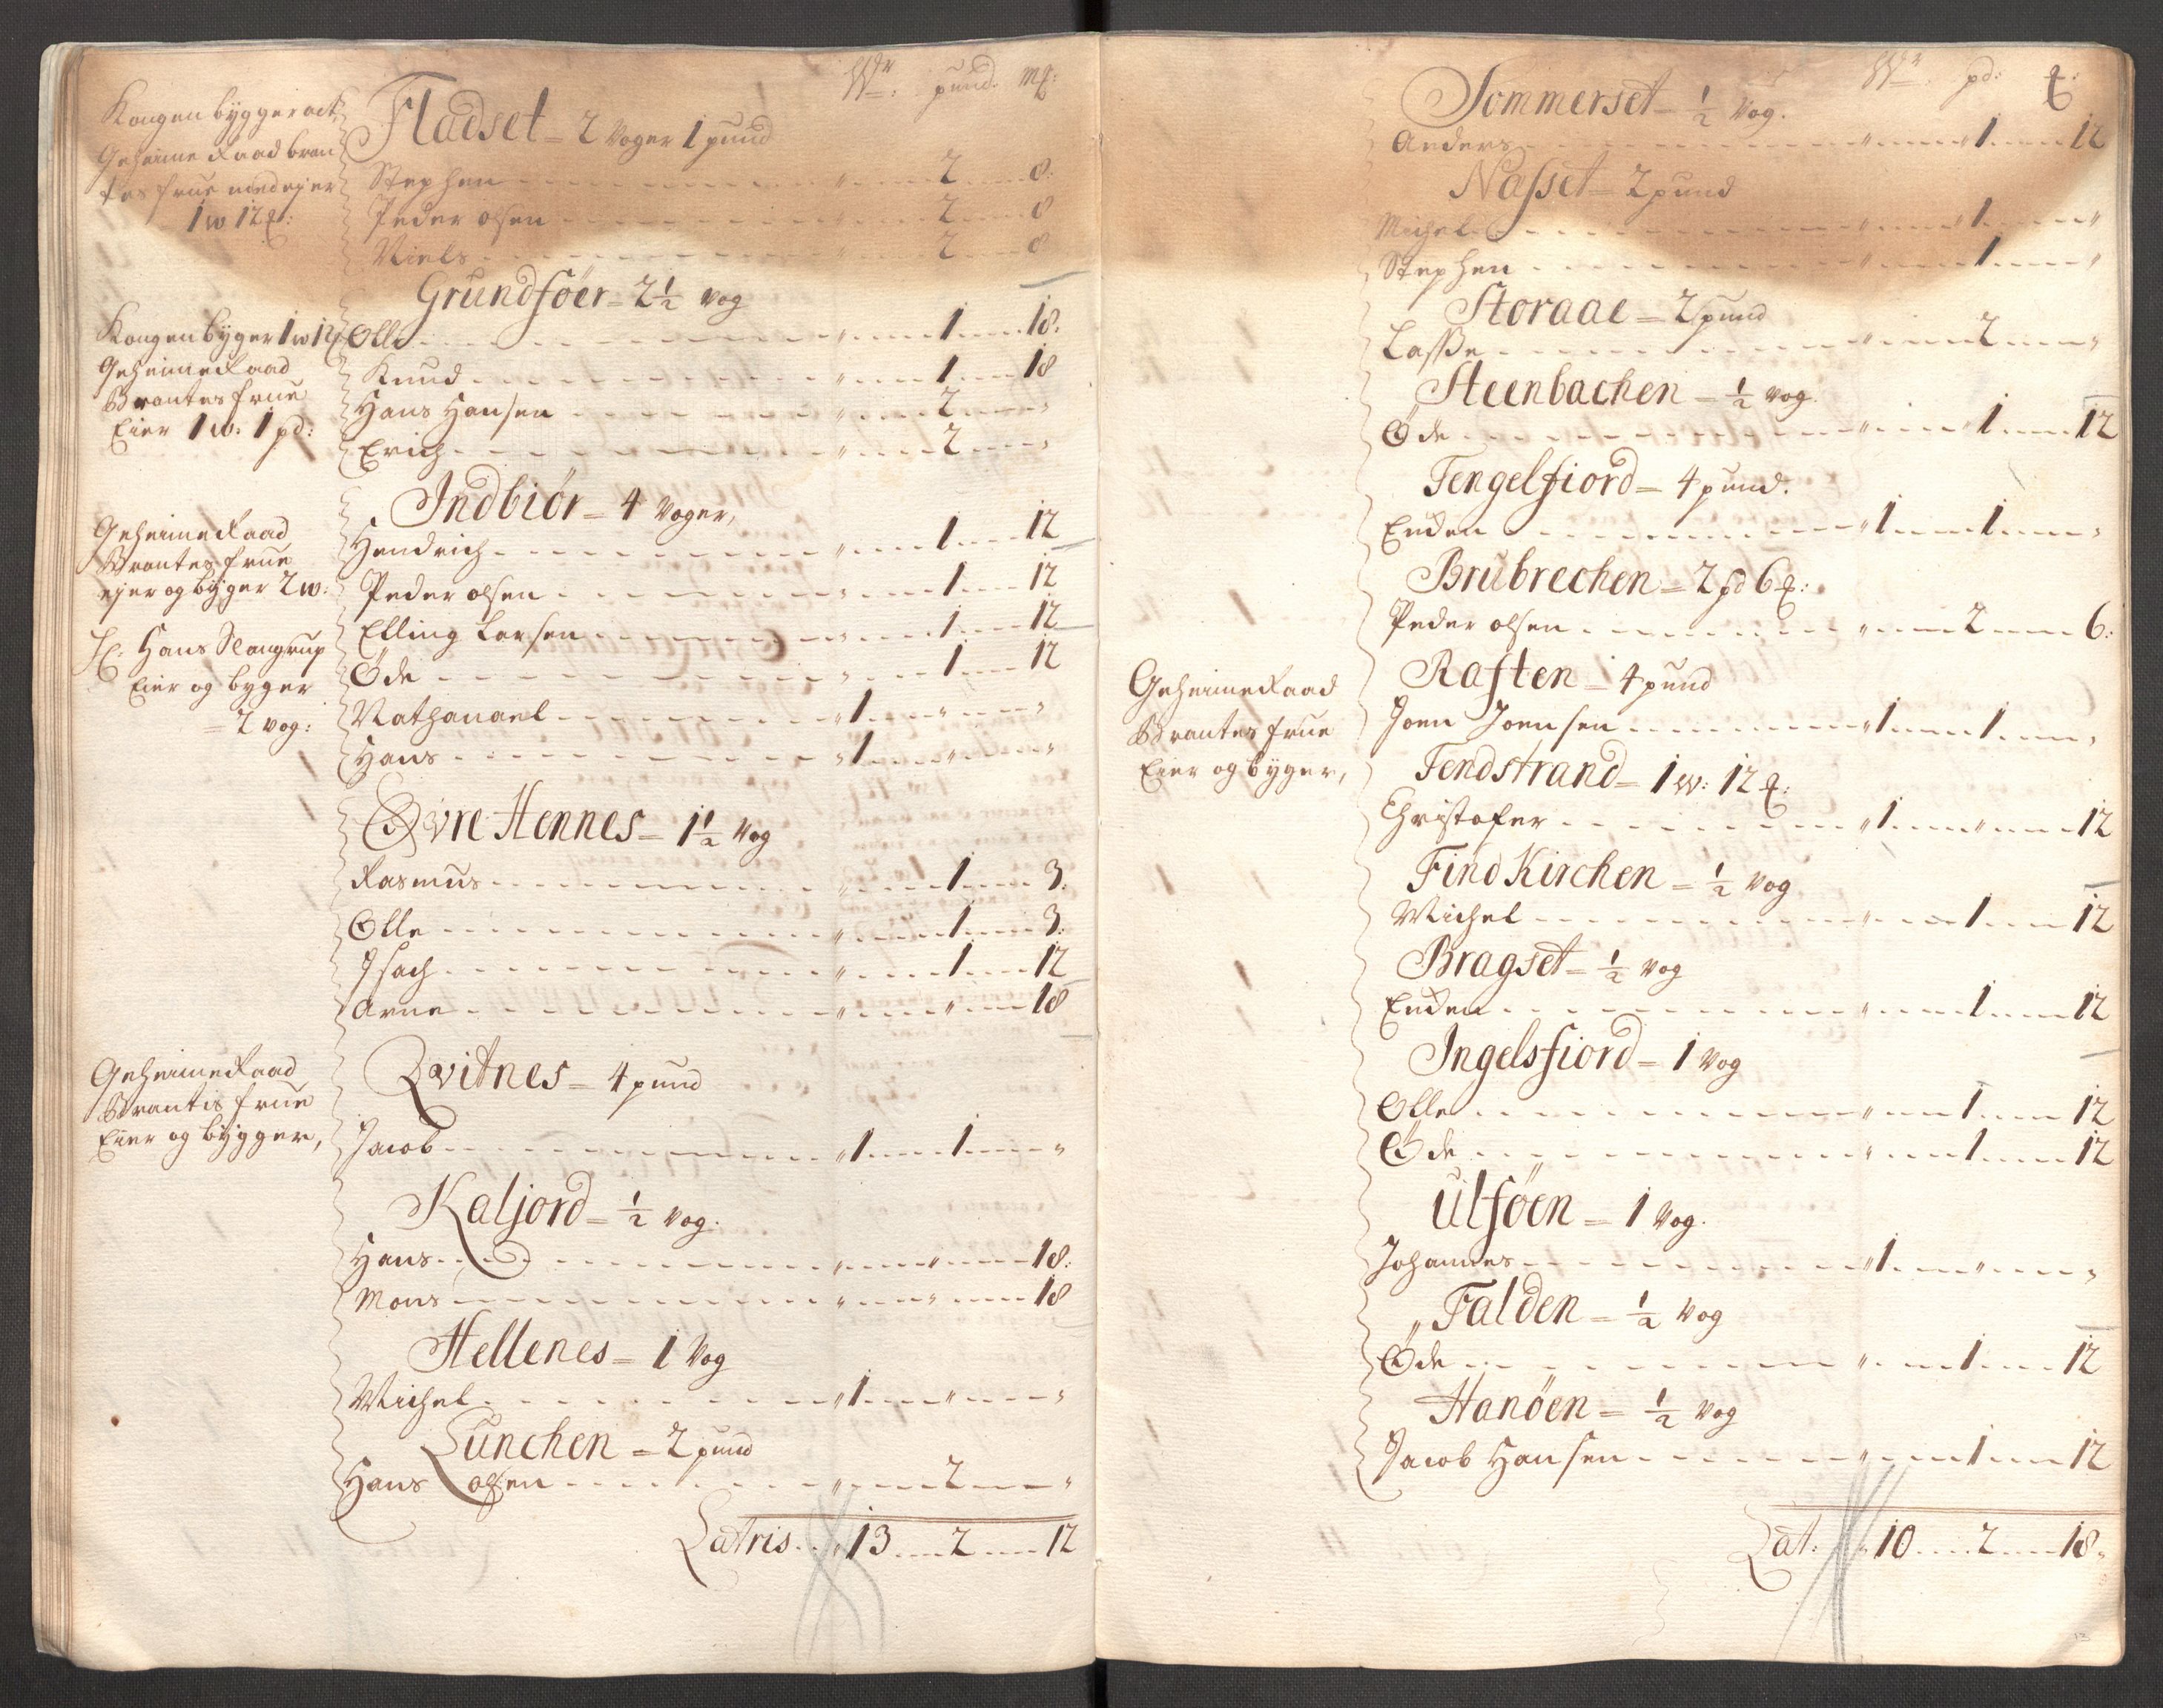 W: pund. mk:
Kongen bygger och
Geheime Raad bran
tes frue med ejer
1 w 12 :
Fladset = 2 Voger 1 pund
Stephen - - - " - - 2 - - 8:
Peder olsen - - - " - - 2 - - 8
Niels - - - " - - 2 - - 8
Grundføer = 2 1/2 Vog
Kongen byger 1 w 12
Geheime Raad
Brantes frue
Eier 1 w: 1 pd:
Olle - - - " - - 1 - - 18.
Knud - - - " - - 1 - - 18
Hans Hansen - - - " - - 2 - - "
Erich - - - " - - 2 - - "
Indbiør = 4 Voger,
Geheime Raad
Brantes frue
ejer og byger 2 w:
Hr: Hans Slangrup
Eier og byger
= 2 vog:
Hendrich - - - " - - 1 - - 12
Peder olsen - - - " - - 1 - - 12
Elling Larsen - - - " - - 1 - - 12
Øde - - - " - - 1 - - 12
Nathanael - - - " 1 - - " - - "
Hans - - - " 1 - - " - - "
Øvre Hennes = 1 1/2 Vog
Rasmus - - - " - - 1 - - 3:
Olle - - - " - - 1 - - 3:
Isach - - - " - - 1 - - 12
Arne - - - " - - " - - 18
Geheime Raad
Brantis frue
Eier og bygger,
Qvitnes = 4 pund
Jacob - - - " 1 - - 1 - - "
Kaljord = 1/2 Vog.
Hans - - - " - - " - - 18:
Mons - - - " - - " - - 18
Hellenes = 1 Vog
Michel - - - " 1 - - " - - "
Lunchen = 2 pund
Hans olsen - - - " - - 2 - - "
Latris - - " 13 - - 2 - - 12
W: pd:
Sommerset = 1/2 Vog.
Anders - - - " - - " 1 - - 12
Nasset = 2 pund
Michel - - - " - - " 1 - - "
Stephen - - - " - - 1 - - "
Storaae = 2 pund
Lasse - - - " - - 2 - - "
Steenbachen = 1/2 Vog.
Øde - - - " - - " 1 - - 12
Tengelfiord = 4 pund.
Enden - - - " 1 - - 1 - - "
Brubrechen = 2 pd 6 :
Peder olsen - - - " - - 2 - - 6:
Geheime Raad
Brantes frue
Eier og byger,
Raften = 4 pund
Joen Joensen - - - " 1 - - 1 - - "
Tendstrand = 1 w: 12 :
Christofer - - - " 1 - - " - - 12
Find Kirchen = 1/2 Vog
Michel - - - " - - 1 - - 12
Bragset = 1/2 Vog
Enden - - - " - - 1 - - 12
Ingelsfiord = 1 Vog
Olle - - - " - - 1 - - 12
Øde - - - " - - 1 - - 12
Ulføen = 1 Vog.
Johannes - - - " 1 - - " - - "
Falden = 1/2 Vog
Øde - - - " - - 1 - - 12
Hanøen = 1/2 Vog
Jacob Hansen - - - " - - 1 - - 12
Lat: " 10 - - 2 - - 18